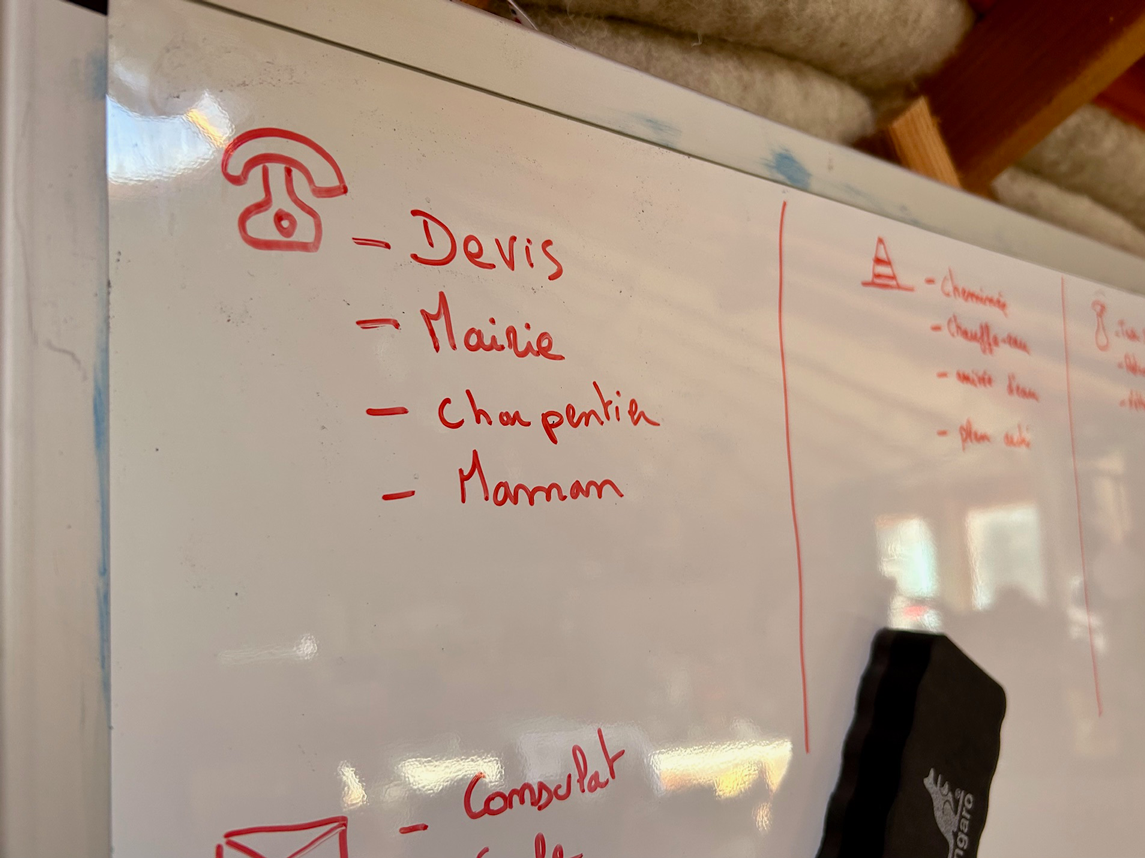 - Devis
- Mairie
- Charpentier
- Maman
- Cheminée
- Chauffe-eau
- arrivée d'eau
- plan
- Consulat